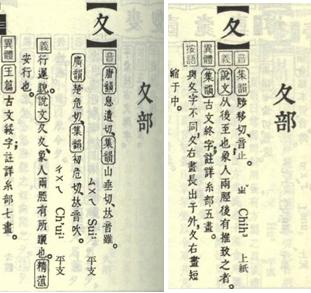 夂部
【夂】
音 集韻 陟侈切,音止。
ㄓ Chihˇ 上紙
義 說文 从後至也象人兩脛後有推致之者。
異體 集韻 古文終字,註詳糸部五畫。
按語 與夊字不同,夊右畫長出于外,夂右畫短
縮于中。
夊部
【夊】
音 唐韻 息遺切,集韻 山垂切,𠀤音雖。
ㄙㄨㄟ Sui 平支
廣韻 楚危切,集韻 初危切,𠀤音吹。
ㄔㄨㄟ Ch'ui 平支
義 行遲貌。說文 夊夊,象人兩脛有所躧也。精薀
安行也。
異體 玉篇 古文綏字,註詳糸部七畫。